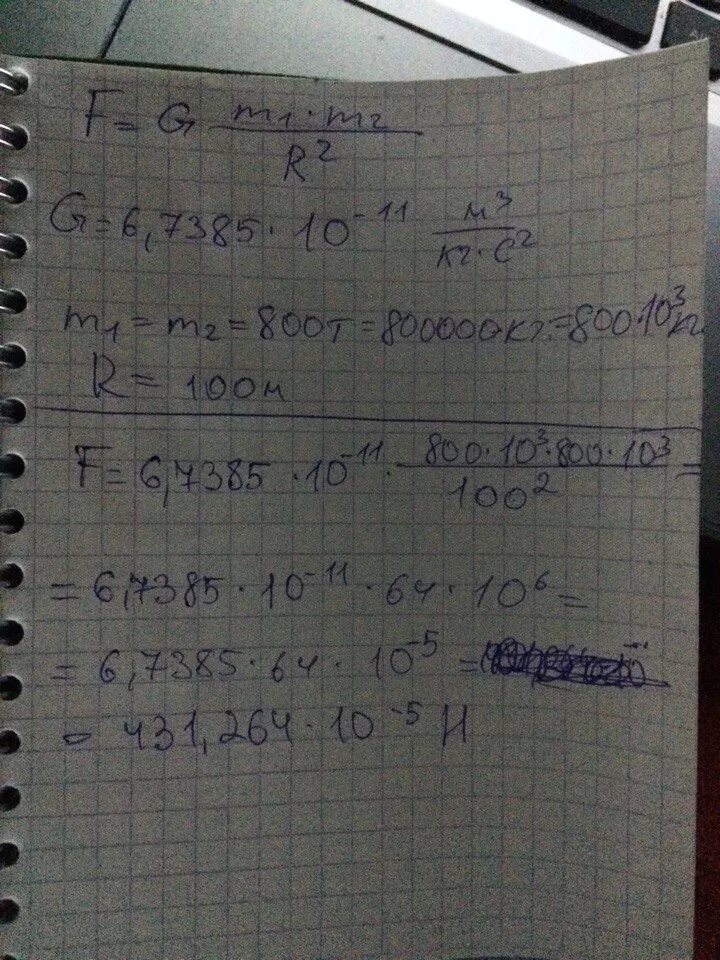 F = G m₁·m₂ / R²
G = 6,7385·10⁻¹¹ м³ / кг·с²
m₁ = m₂ = 800т = 800000кг. = 800·10³кг
R = 100м
F = 6,7385·10⁻¹¹· 800·10³·800·10³ / 100² =
= 6,7385·10⁻¹¹·64·10⁶ =
= 6,7385·64·10⁻⁵ =
= 431,264·10⁻⁵ Н